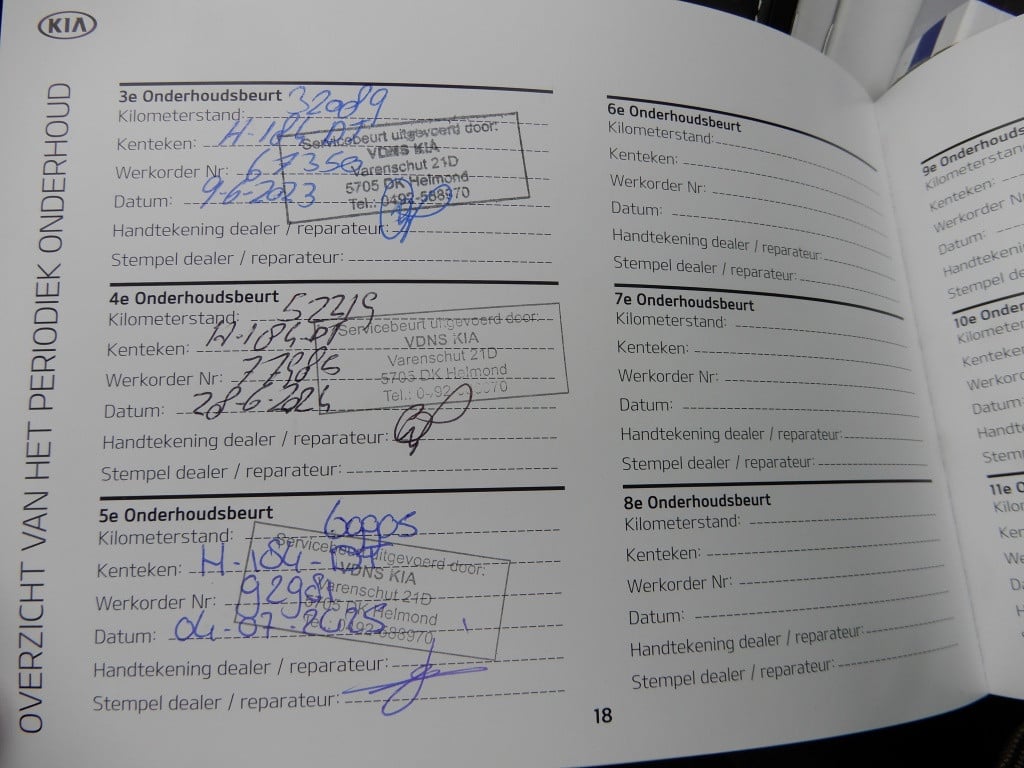 KIA
OVERZICHT VAN HET PERIODIEK ONDERHOUD
3e Onderhoudsbeurt
Kilometerstand: 32089
Kenteken: H-184-PT
Werkorder Nr: 67350
Datum: 9-6-2023
Handtekening dealer / reparateur:
Stempel dealer / reparateur:
Servicebeurt uitgevoerd door:
VDNS KIA
Varenschut 21D
5705 DK Helmond
Tel.: 0492-588970
4e Onderhoudsbeurt
Kilometerstand: 52219
Kenteken: H-184-PT
Werkorder Nr: 77985
Datum: 28-6-2024
Handtekening dealer / reparateur:
Stempel dealer / reparateur:
Servicebeurt uitgevoerd door:
VDNS KIA
Varenschut 21D
5705 DK Helmond
Tel.: 0492-588970
5e Onderhoudsbeurt
Kilometerstand:
Kenteken: H-184-PT
Werkorder Nr: 92981
Datum: 04-07-2025
Handtekening dealer / reparateur:
Stempel dealer / reparateur:
Servicebeurt uitgevoerd door:
VDNS KIA
Varenschut 21D
5705 DK Helmond
Tel.: 0492-588970
6e Onderhoudsbeurt
Kilometerstand:
Kenteken:
Werkorder Nr:
Datum:
Handtekening dealer / reparateur:
Stempel dealer / reparateur:
7e Onderhoudsbeurt
Kilometerstand:
Kenteken:
Werkorder Nr:
Datum:
Handtekening dealer / reparateur:
Stempel dealer / reparateur:
8e Onderhoudsbeurt
Kilometerstand:
Kenteken:
Werkorder Nr:
Datum:
Handtekening dealer / reparateur:
Stempel dealer / reparateur:
18
9e Onderhouds
Kilometerstan
Kenteken:
Werkorder N
Datum:
Handtekening
Stempel de
10e Onderh
Kilometer
Kenteke
Werkor
Datum:
Handt
Stem
11e O
Kilo
Ker
We